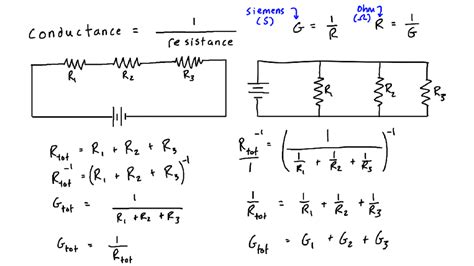 Conductance = 1/resistance
Siemens (S) G = 1/R
Ohm (Ω) R = 1/G
R₁ R₂ R₃
R₁ R₂ R₃
R_tot = R₁ + R₂ + R₃
R_tot⁻¹ = (R₁ + R₂ + R₃)⁻¹
G_tot = 1/(R₁ + R₂ + R₃)
G_tot = 1/R_tot
R_tot⁻¹/1 = (1/(1/R₁ + 1/R₂ + 1/R₃))⁻¹
1/R_tot = 1/R₁ + 1/R₂ + 1/R₃
G_tot = G₁ + G₂ + G₃